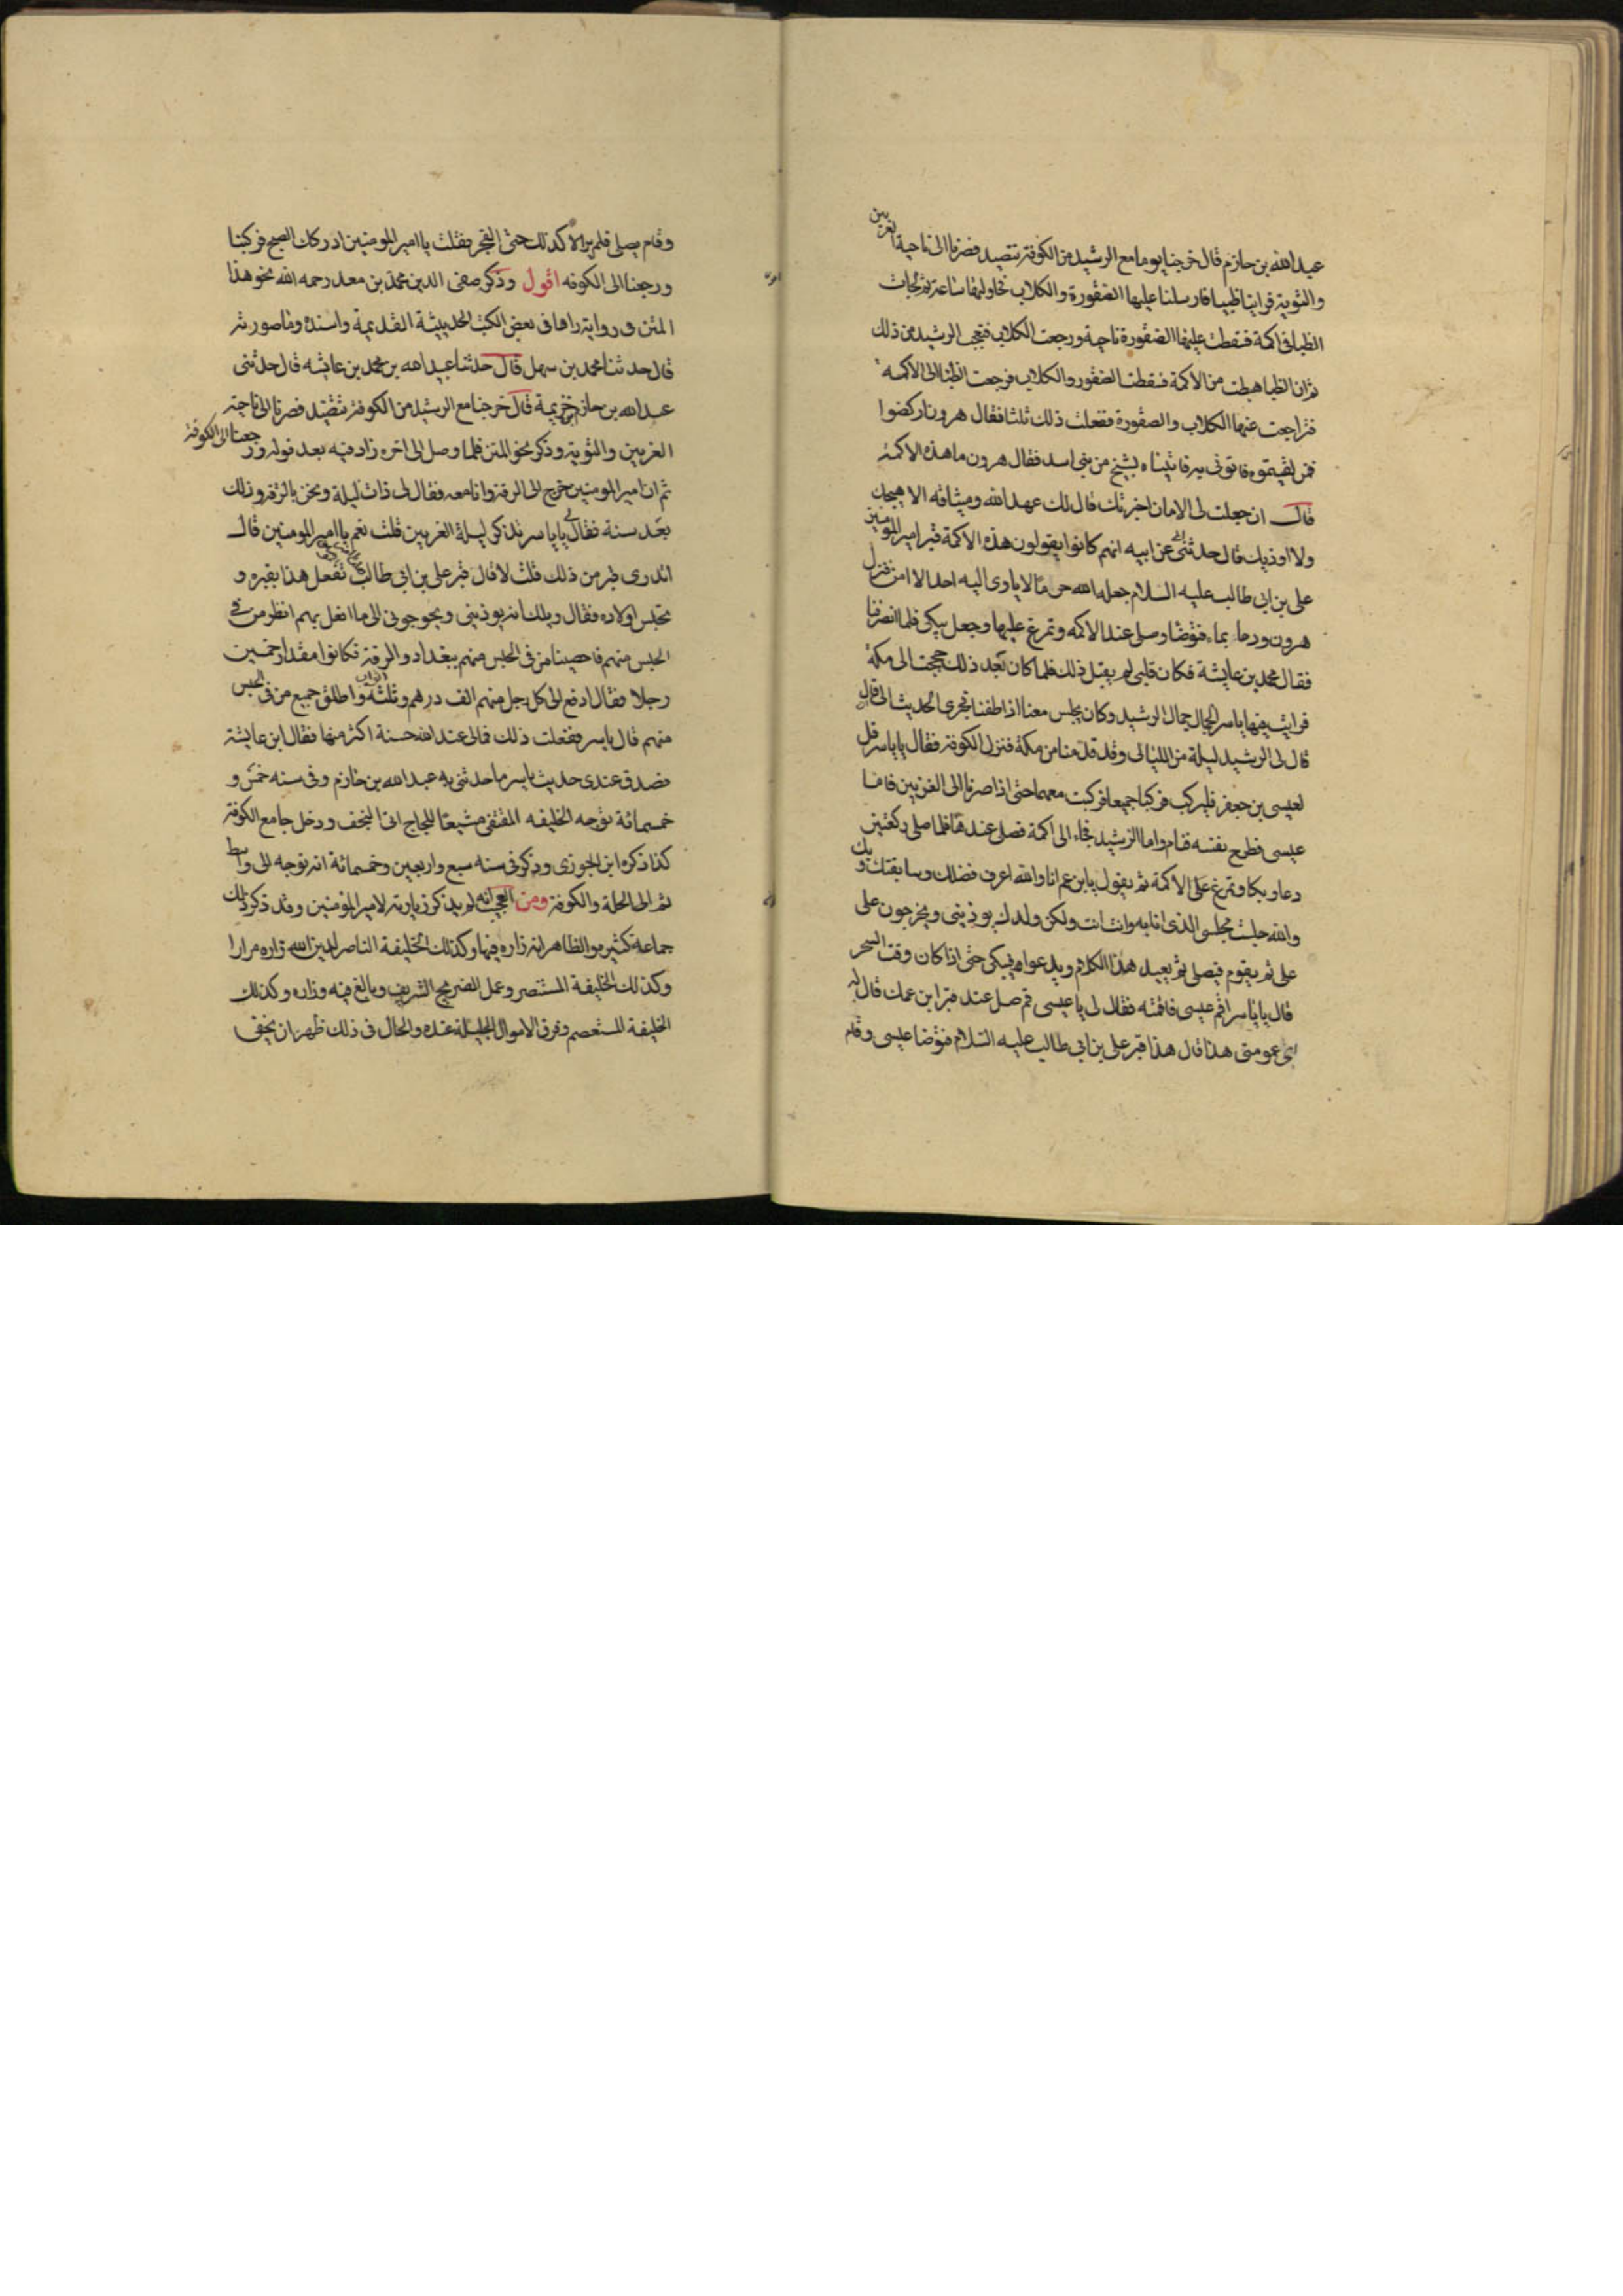 عبد الله بن حازم قال خرجنا يوما مع الرشيد من الكوفة نتصيد فصرنا الى ناحية الغريين
والثوية فراينا ظبيا فارسلنا عليها الصقورة والكلاب فحاولتها ساعة ثم لجات
الظبا الى اكمة فسقطت عليها الصقورة ناحية ورجعت الكلاب فتعجب الرشيد من ذلك
ثم ان الظبا هبطت من الاكمة فسقطت الصقور والكلاب فرجعت الظبا الى الاكمة
فتراجعت عنها الكلاب والصقورة ففعلت ذلك ثلثا فقال هرون اركضوا
فمن لقيتموه فاتونى به فاتيناه بشيخ من بنى اسد فقال هرون ما هذه الاكمة
قال ان جعلت لى الامان اخبرتك قال لك عهد الله وميثاقه الا اهيجك
ولا اوذيك قال حدثنى ابى عن ابيه انهم كانوا يقولون هذه الاكمة قبر امير المومنين
على بن ابى طالب عليه السلام جعله الله حرما لا ياوى اليه احد الا امن فنزل
هرون ودعا بماء فتوضا وصلى عند الاكمة وتمرغ عليها وجعل يبكى فلما انصرفنا
فقال محمد بن عايشة فكان قلبى لم يقبل ذلك فلما كان بعد ذلك حججت الى مكة
فرايت فيها ياسر الجمال جمال الرشيد وكان يجلس معنا اذا طفنا فجرى الحديث الى ان قال
قال لى الرشيد ليلة من الليالى وقد قدمنا من مكة فنزل الكوفة فقال يا ياسر قل
لعيسى بن جعفر فليركب فركبا جميعا وركبت معهما حتى اذا صرنا الى الغريين فاما
عيسى فطرح نفسه فنام واما الرشيد فجاء الى اكمة فصلى عندها فلما صلى ركعتين
دعا وبكا وتمرغ على الاكمة ثم يقول يا ابن عم انا والله اعرف فضلك وسابقتك وبك
والله جلست مجلسى الذى انا به وانت انت ولكن ولدك يوذيننى ويخرجون على
على ثم يقوم فيصلى ثم يعيد هذا الكلام ويدعوا ويبكى حتى اذا كان وقت السحر
قال يا ياسر اقم عيسى فاقمته فقال لى يا عيسى قم صل عند قبر ابن عمك قال له
اى عمومتى هذا قال هذا قبر على بن ابى طالب عليه السلام فتوضا عيسى وقام
وقام يصلى فلم يزالا كذلك حتى الفجر فقلت يا امير المومنين ادركك الصبح فركبنا
ورجعنا الى الكوفه اقول وذكر صفى الدين محمد بن معد رحمه الله نحو هذا
المتن ورواية راها فى بعض الكتب الحديثية القديمة واسنده وما صورته
قال حدثنا محمد بن سهل قال حدثنا عبيد الله بن محمد بن عايشه قال حدثنى
عبد الله بن حازم بن خزيمة قال خرجنا مع الرشيد من الكوفة نتصيد فصرنا الى ناحية
الغريين والثوية وذكر نحو المتن فلما وصل الى اخره زاد فيه بعد قوله ورجعنا الى الكوفة
ثم ان امير المومنين خرج الى الرقة وانا معه فقال لى ذات ليلة ونحن بالرقة وذلك
بعد سنة فقال لى يا ياسر تذكر ليلة الغريين قلت نعم يا امير المومنين قال
اتدرى قبر من ذلك قلت لا قال قبر على بن ابى طالب تفعل هذا بقبره و
تحبس اولاده فقال ويلك انهم يوذيننى ويحوجونى الى ما افعل بهم انظر من فى
الحبس منهم فاحصينا من فى الحبس منهم ببغداد والرقة فكانوا مقدار خمسين
رجلا فقال ادفع الى كل رجل منهم الف درهم وثلثة اثواب واطلق جميع من فى الحبس
منهم قال ياسر ففعلت ذلك فمالى عند الله حسنة اكثر منها فقال ابن عايشة
فصدق عندى حديث ياسر ما حدثنى به عبد الله بن حازم وفى سنه خمس و
خمسمائة توجه الخليفه المقتفى مشيعا للحجاج الى النجف ودخل جامع الكوفة
كذا ذكره ابن الجوزى وذكر فى سنه سبع واربعين وخمسمائة انه توجه الى واسط
ثم الى الحلة والكوفة ومن العجب انه لم يذكر زيارته لامير المؤمنين وقد ذكر ذلك
جماعة كثير والظاهر انه زاره فيها وكذلك الخليفة الناصر لدين الله زاره مرارا
وكذلك الخليفة المستنصر وعمل الضريح الشريف وبالغ فيه وزاره وكذلك
الخليفة المستعصم وفرق الاموال الجليلة عنده والحال فى ذلك ظهر ان يخفى